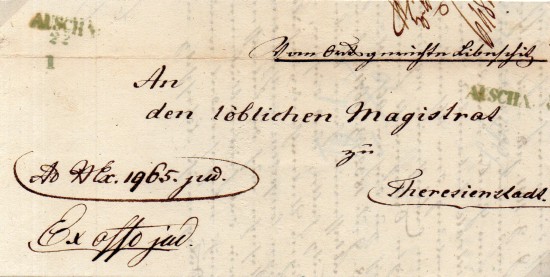 ALSCHA.
22
1
Vom Ortsgerichte Libeschitz
ALSCHA.
An
den löblichen Magistrat
zu
Theresienstadt.
1965. jud.
Ex offo jud.